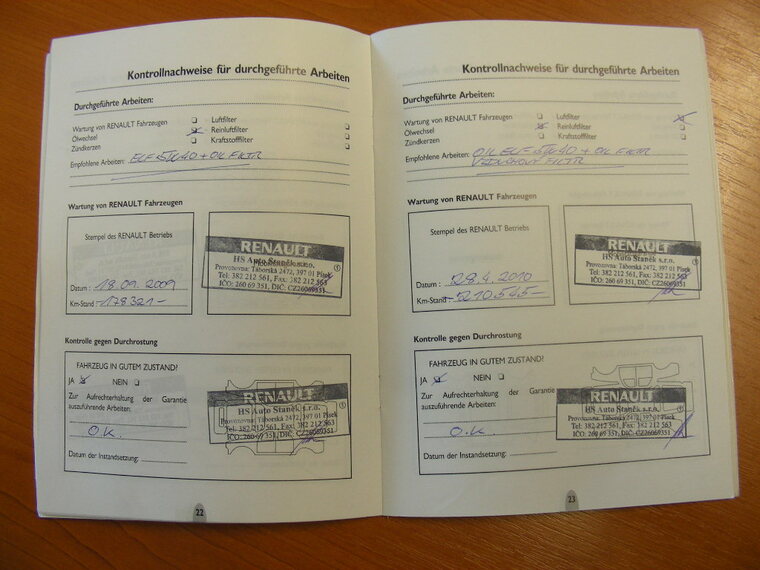 Kontrollnachweise für durchgeführte Arbeiten
Durchgeführte Arbeiten:
Wartung von RENAULT Fahrzeugen ☐ Luftfilter ☐
Ölwechsel ☒ Reinluftfilter ☐
Zündkerzen ☐ Kraftstofffilter ☐
Empfohlene Arbeiten: ELF 5W40 + OIL FILTR
Wartung von RENAULT Fahrzeugen
Stempel des RENAULT Betriebs
Datum : 18.09.2009
Km-Stand -178321-
RENAULT
HS Auto Staněk s.r.o.
Provozovna: Táborská 2472, 397 01 Písek
Tel: 382 212 561, Fax: 382 212 563
IČO: 260 69 351, DIČ: CZ26069351
Kontrolle gegen Durchrostung
FAHRZEUG IN GUTEM ZUSTAND?
JA ☒ NEIN ☐
Zur Aufrechterhaltung der Garantie
auszuführende Arbeiten:
O.K.
Datum der Instandsetzung:
RENAULT
HS Auto Staněk s.r.o.
Provozovna: Táborská 2472, 397 01 Písek
Tel: 382 212 561, Fax: 382 212 563
IČO: 260 69 351, DIČ: CZ26069351
22
Kontrollnachweise für durchgeführte Arbeiten
Durchgeführte Arbeiten:
Wartung von RENAULT Fahrzeugen ☐ Luftfilter ☒
Ölwechsel ☒ Reinluftfilter ☐
Zündkerzen ☐ Kraftstofffilter ☐
Empfohlene Arbeiten: OIL ELF 5W40 + OIL FILTR
VZDUCHOVÝ FILTR
Wartung von RENAULT Fahrzeugen
Stempel des RENAULT Betriebs
Datum : 28.4.2010
Km-Stand -210.545-
RENAULT
HS Auto Staněk s.r.o.
Provozovna: Táborská 2472, 397 01 Písek
Tel: 382 212 561, Fax: 382 212 563
IČO: 260 69 351, DIČ: CZ26069351
Kontrolle gegen Durchrostung
FAHRZEUG IN GUTEM ZUSTAND?
JA ☒ NEIN ☐
Zur Aufrechterhaltung der Garantie
auszuführende Arbeiten:
O.K.
Datum der Instandsetzung:
RENAULT
HS Auto Staněk s.r.o.
Provozovna: Táborská 2472, 397 01 Písek
Tel: 382 212 561, Fax: 382 212 563
IČO: 260 69 351, DIČ: CZ26069351
23